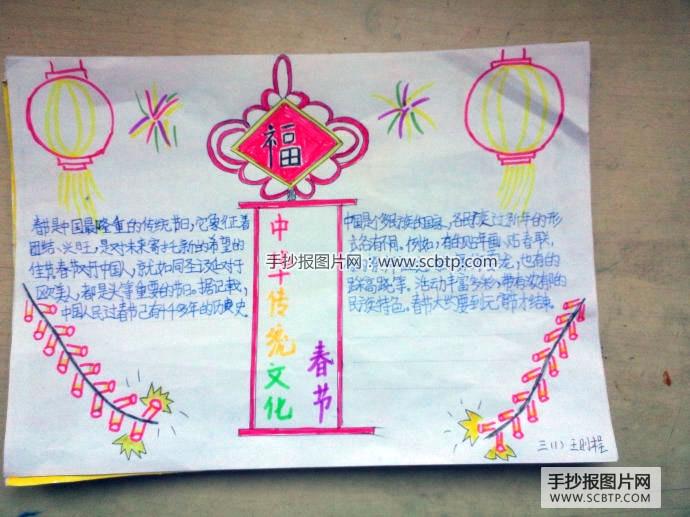 福
中华传统文化
春节
春节是中国最隆重的传统节日,它象征着
团结、兴旺,是对未来寄托新的希望的
佳节。春节对于中国人,就如同圣诞对于
欧美人,都是头等重要的节日。据记载,
中国人民过春节已有4千多年的历史。
中国是个多民族的国家,各民族过新年的形
式各有不同。例如,有的贴年画、贴春联,
龙,也有的
踩高跷等。活动丰富多彩,带有浓郁的
民族特色。春节大约要到元宵节才结束
三(1) 王则程
手抄报图片网:www.scbtp.com
手抄报图片网
WWW.SCBTP.COM